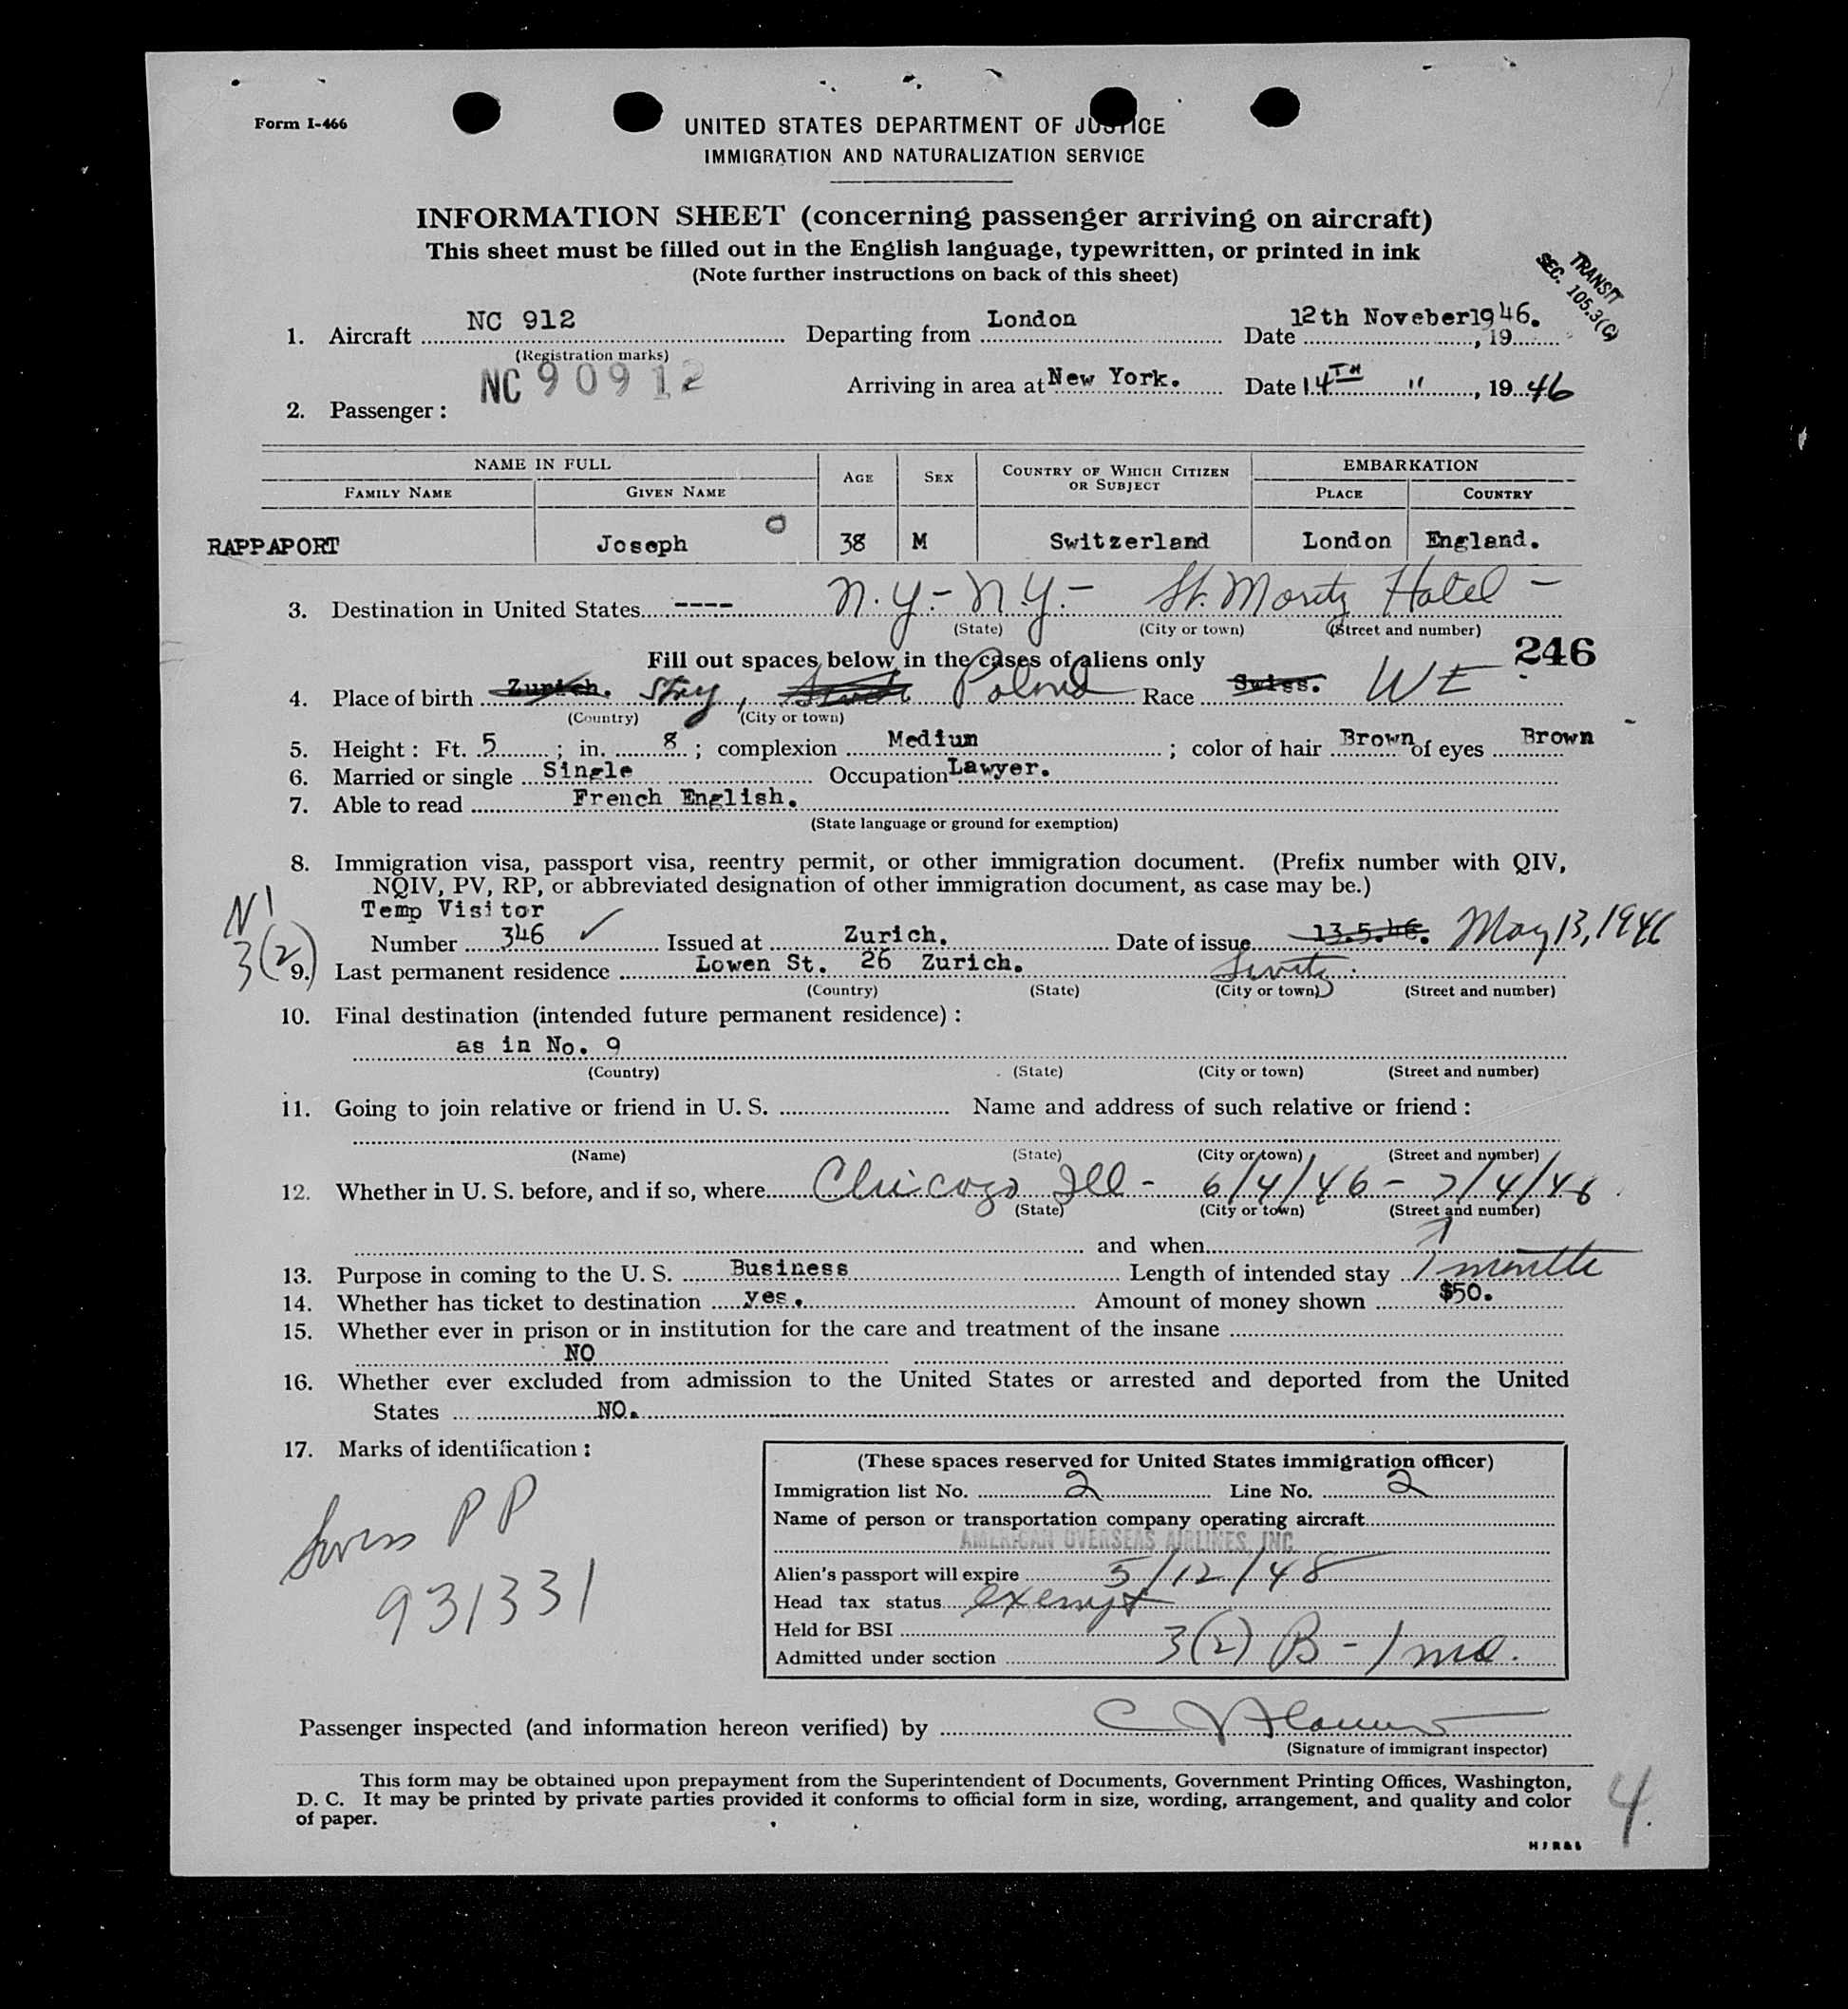 Form I-466
UNITED STATES DEPARTMENT OF JUSTICE
IMMIGRATION AND NATURALIZATION SERVICE
INFORMATION SHEET (concerning passenger arriving on aircraft)
This sheet must be filled out in the English language, typewritten, or printed in ink
(Note further instructions on back of this sheet)
TRANSIT
SEC. 105.3(C)
1. Aircraft NC 912 Departing from London Date 12th Noveber1946. , 19
(Registration marks)
NC 90912 Arriving in area at New York. Date 14TH " , 1946
2. Passenger:
NAME IN FULL AGE SEX COUNTRY OF WHICH CITIZEN OR SUBJECT EMBARKATION
FAMILY NAME GIVEN NAME PLACE COUNTRY
RAPPAPORT Joseph 38 M Switzerland London England.
3. Destination in United States ---- N.Y.- N.Y.- St. Moritz Hotel -
(State) (City or town) (Street and number)
Fill out spaces below in the cases of aliens only 246
4. Place of birth Zurich. Stry, Poland Race Swiss. WE
(Country) (City or town)
5. Height: Ft. 5 ; in. 8 ; complexion Medium ; color of hair Brown of eyes Brown
6. Married or single Single Occupation Lawyer.
7. Able to read French English.
(State language or ground for exemption)
8. Immigration visa, passport visa, reentry permit, or other immigration document. (Prefix number with QIV,
NQIV, PV, RP, or abbreviated designation of other immigration document, as case may be.)
Temp Visitor
Number 346 ✓ Issued at Zurich. Date of issue 13.5.46. May 13, 1946
3(2)
9. Last permanent residence Lowen St. 26 Zurich.
(Country) (State) (City or town) (Street and number)
10. Final destination (intended future permanent residence):
as in No. 9
(Country) (State) (City or town) (Street and number)
11. Going to join relative or friend in U. S. Name and address of such relative or friend:
(Name) (State) (City or town) (Street and number)
12. Whether in U. S. before, and if so, where Chicago Ill - 6/4/46 - 7/4/46
(State) (City or town) (Street and number)
and when
13. Purpose in coming to the U. S. Business Length of intended stay 1 month
14. Whether has ticket to destination yes. Amount of money shown $50.
15. Whether ever in prison or in institution for the care and treatment of the insane
NO
16. Whether ever excluded from admission to the United States or arrested and deported from the United
States NO.
17. Marks of identification:
Swiss PP
931331
(These spaces reserved for United States immigration officer)
Immigration list No. 2 Line No. 2
Name of person or transportation company operating aircraft
AMERICAN OVERSEAS AIRLINES, INC
Alien's passport will expire 5/12/48
Head tax status exempt
Held for BSI
Admitted under section 3(2) B - 1 mo.
Passenger inspected (and information hereon verified) by
(Signature of immigrant inspector)
This form may be obtained upon prepayment from the Superintendent of Documents, Government Printing Offices, Washington,
D. C. It may be printed by private parties provided it conforms to official form in size, wording, arrangement, and quality and color
of paper.
4.